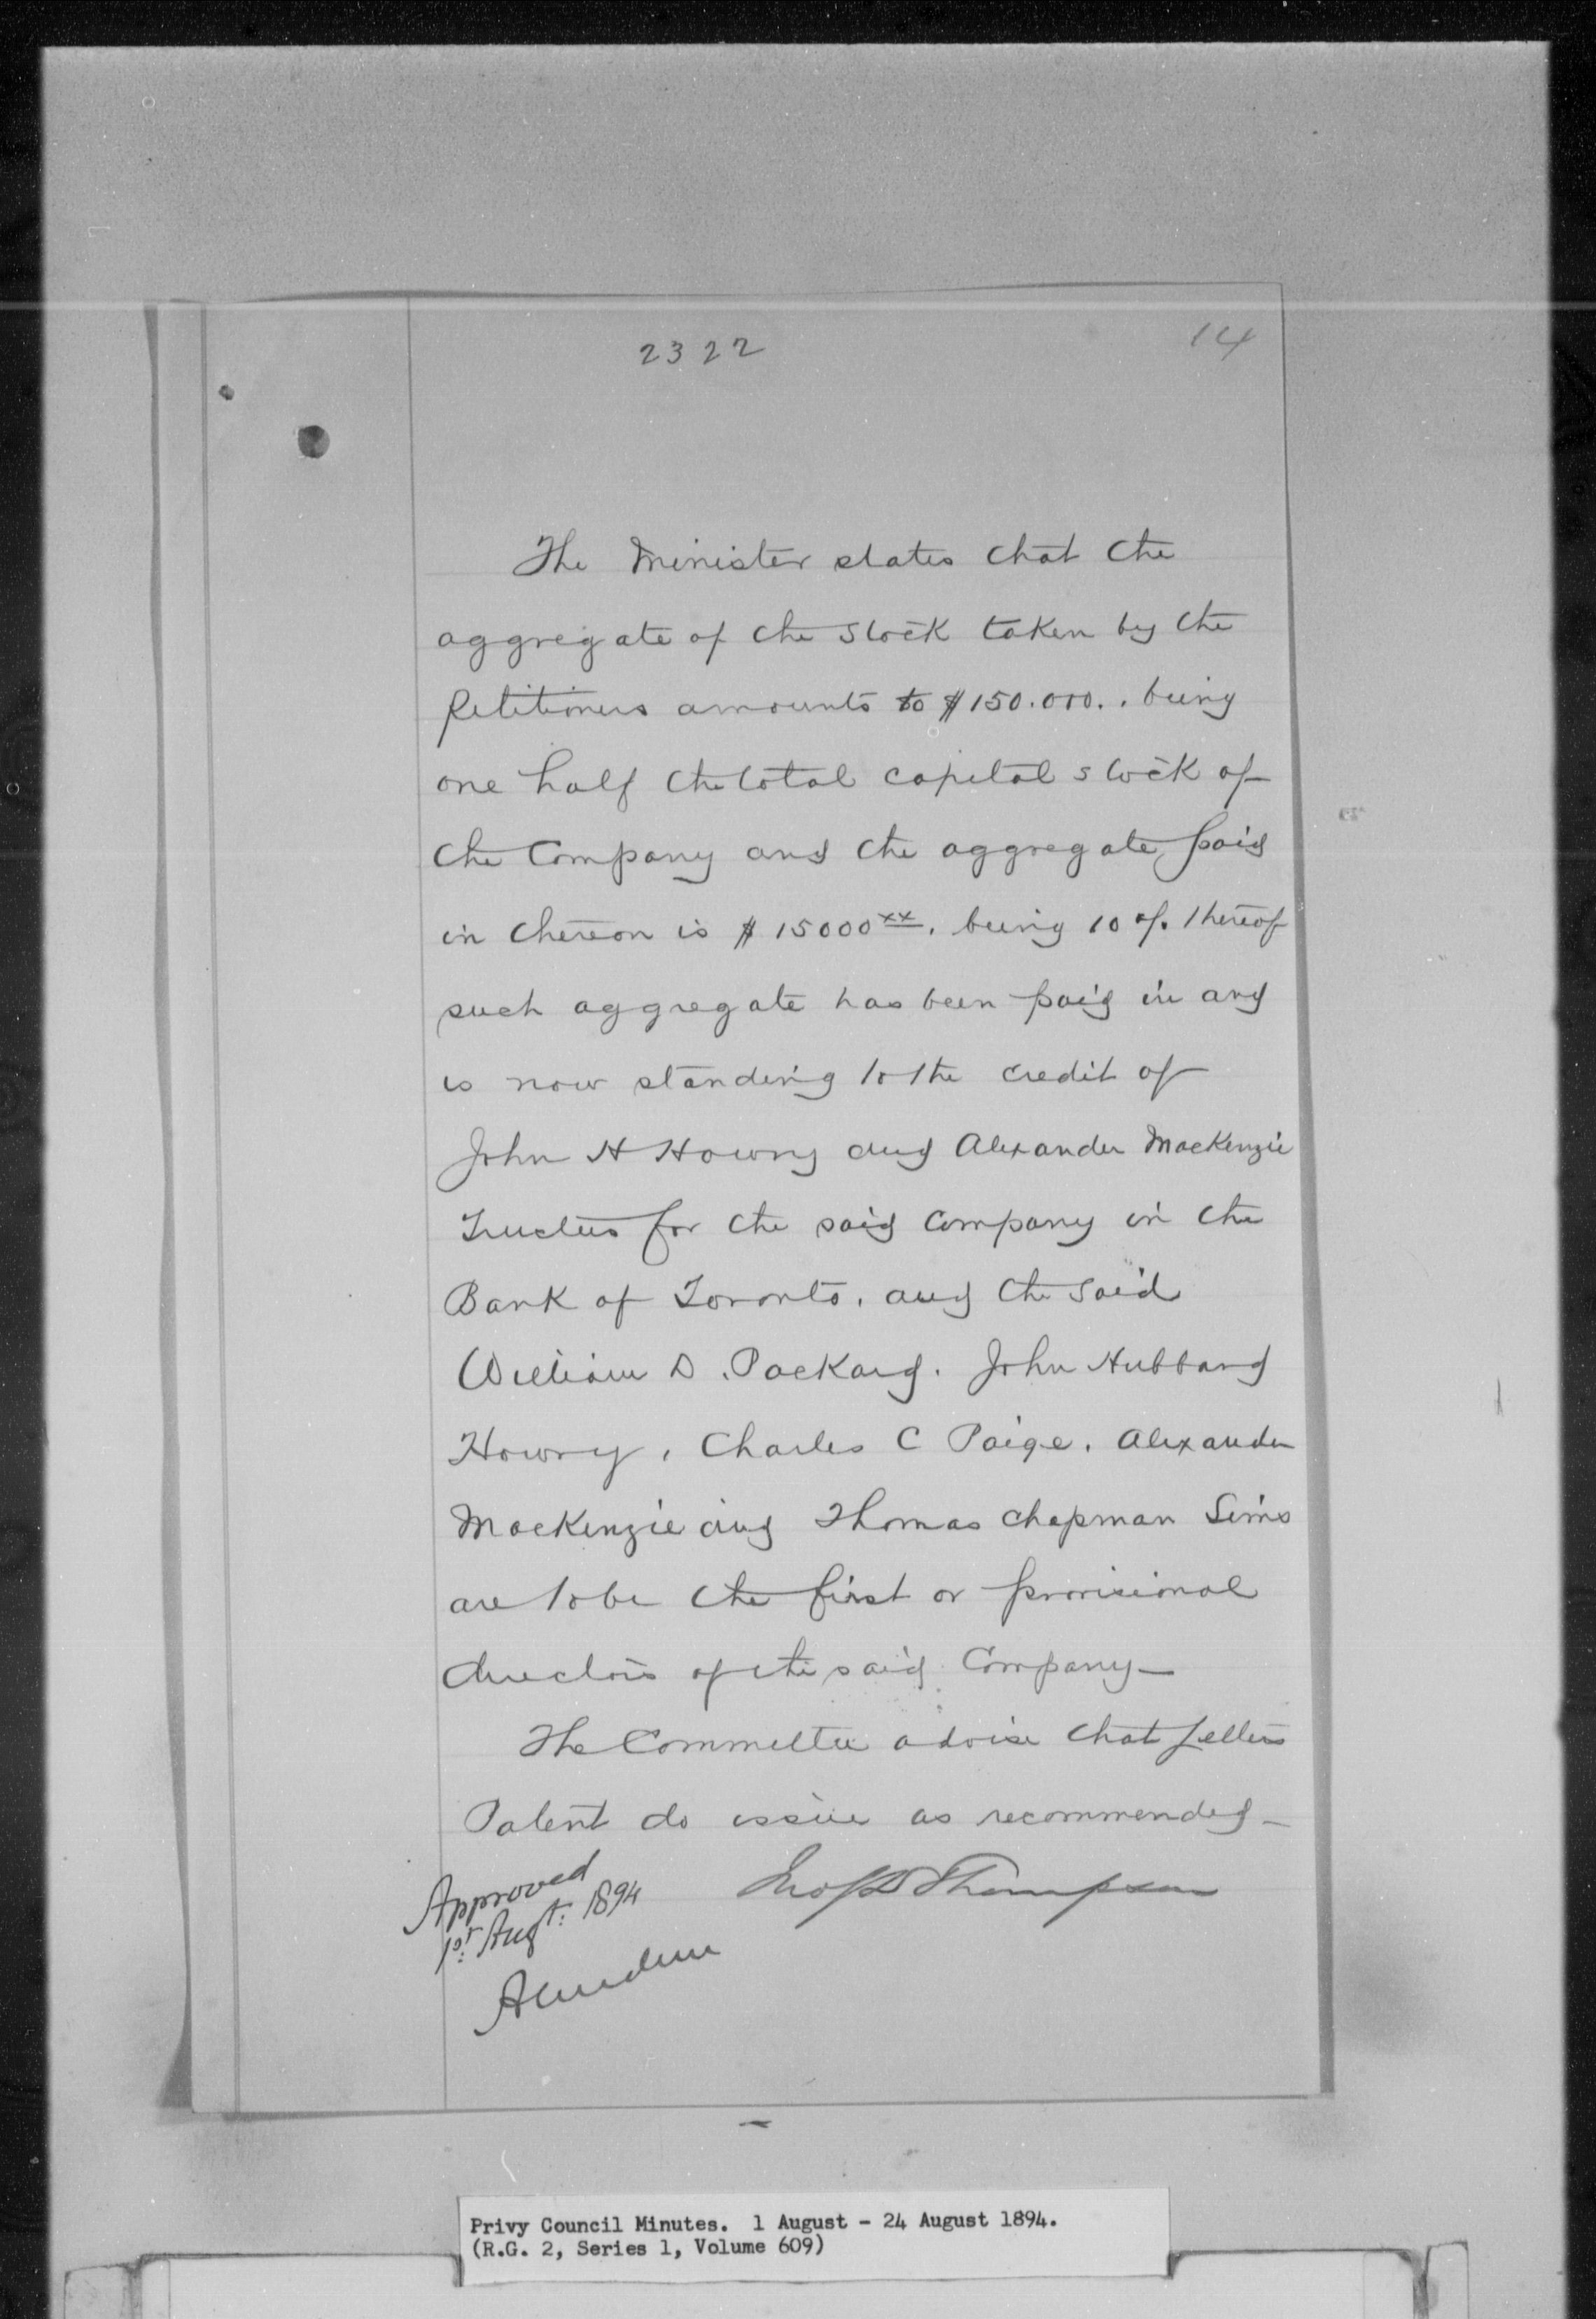 2322
14
The Minister states that the
aggregate of the Stock taken by the
Petitioners amounts to $150.000.. being
one half the total capital stock of
the Company and the aggregate paid
in thereon is $15000xx. being 10 %. thereof
such aggregate has been paid in and
is now standing to the credit of
John H Howry and Alexander Mackenzie
Trustees for the said Company in the
Bank of Toronto. and the said
William D. Packard. John Hubbard
Howry, Charles C Paige. Alexander
Mackenzie and Thomas Chapman Sims
are to be the first or provisional
directors of the said Company—
The Committee advise that Letters
Patent do issue as recommended—
Approved
1st Augt: 1894
Jno S D Thompson
Aberdeen
Privy Council Minutes. 1 August - 24 August 1894.
(R.G. 2, Series 1, Volume 609)